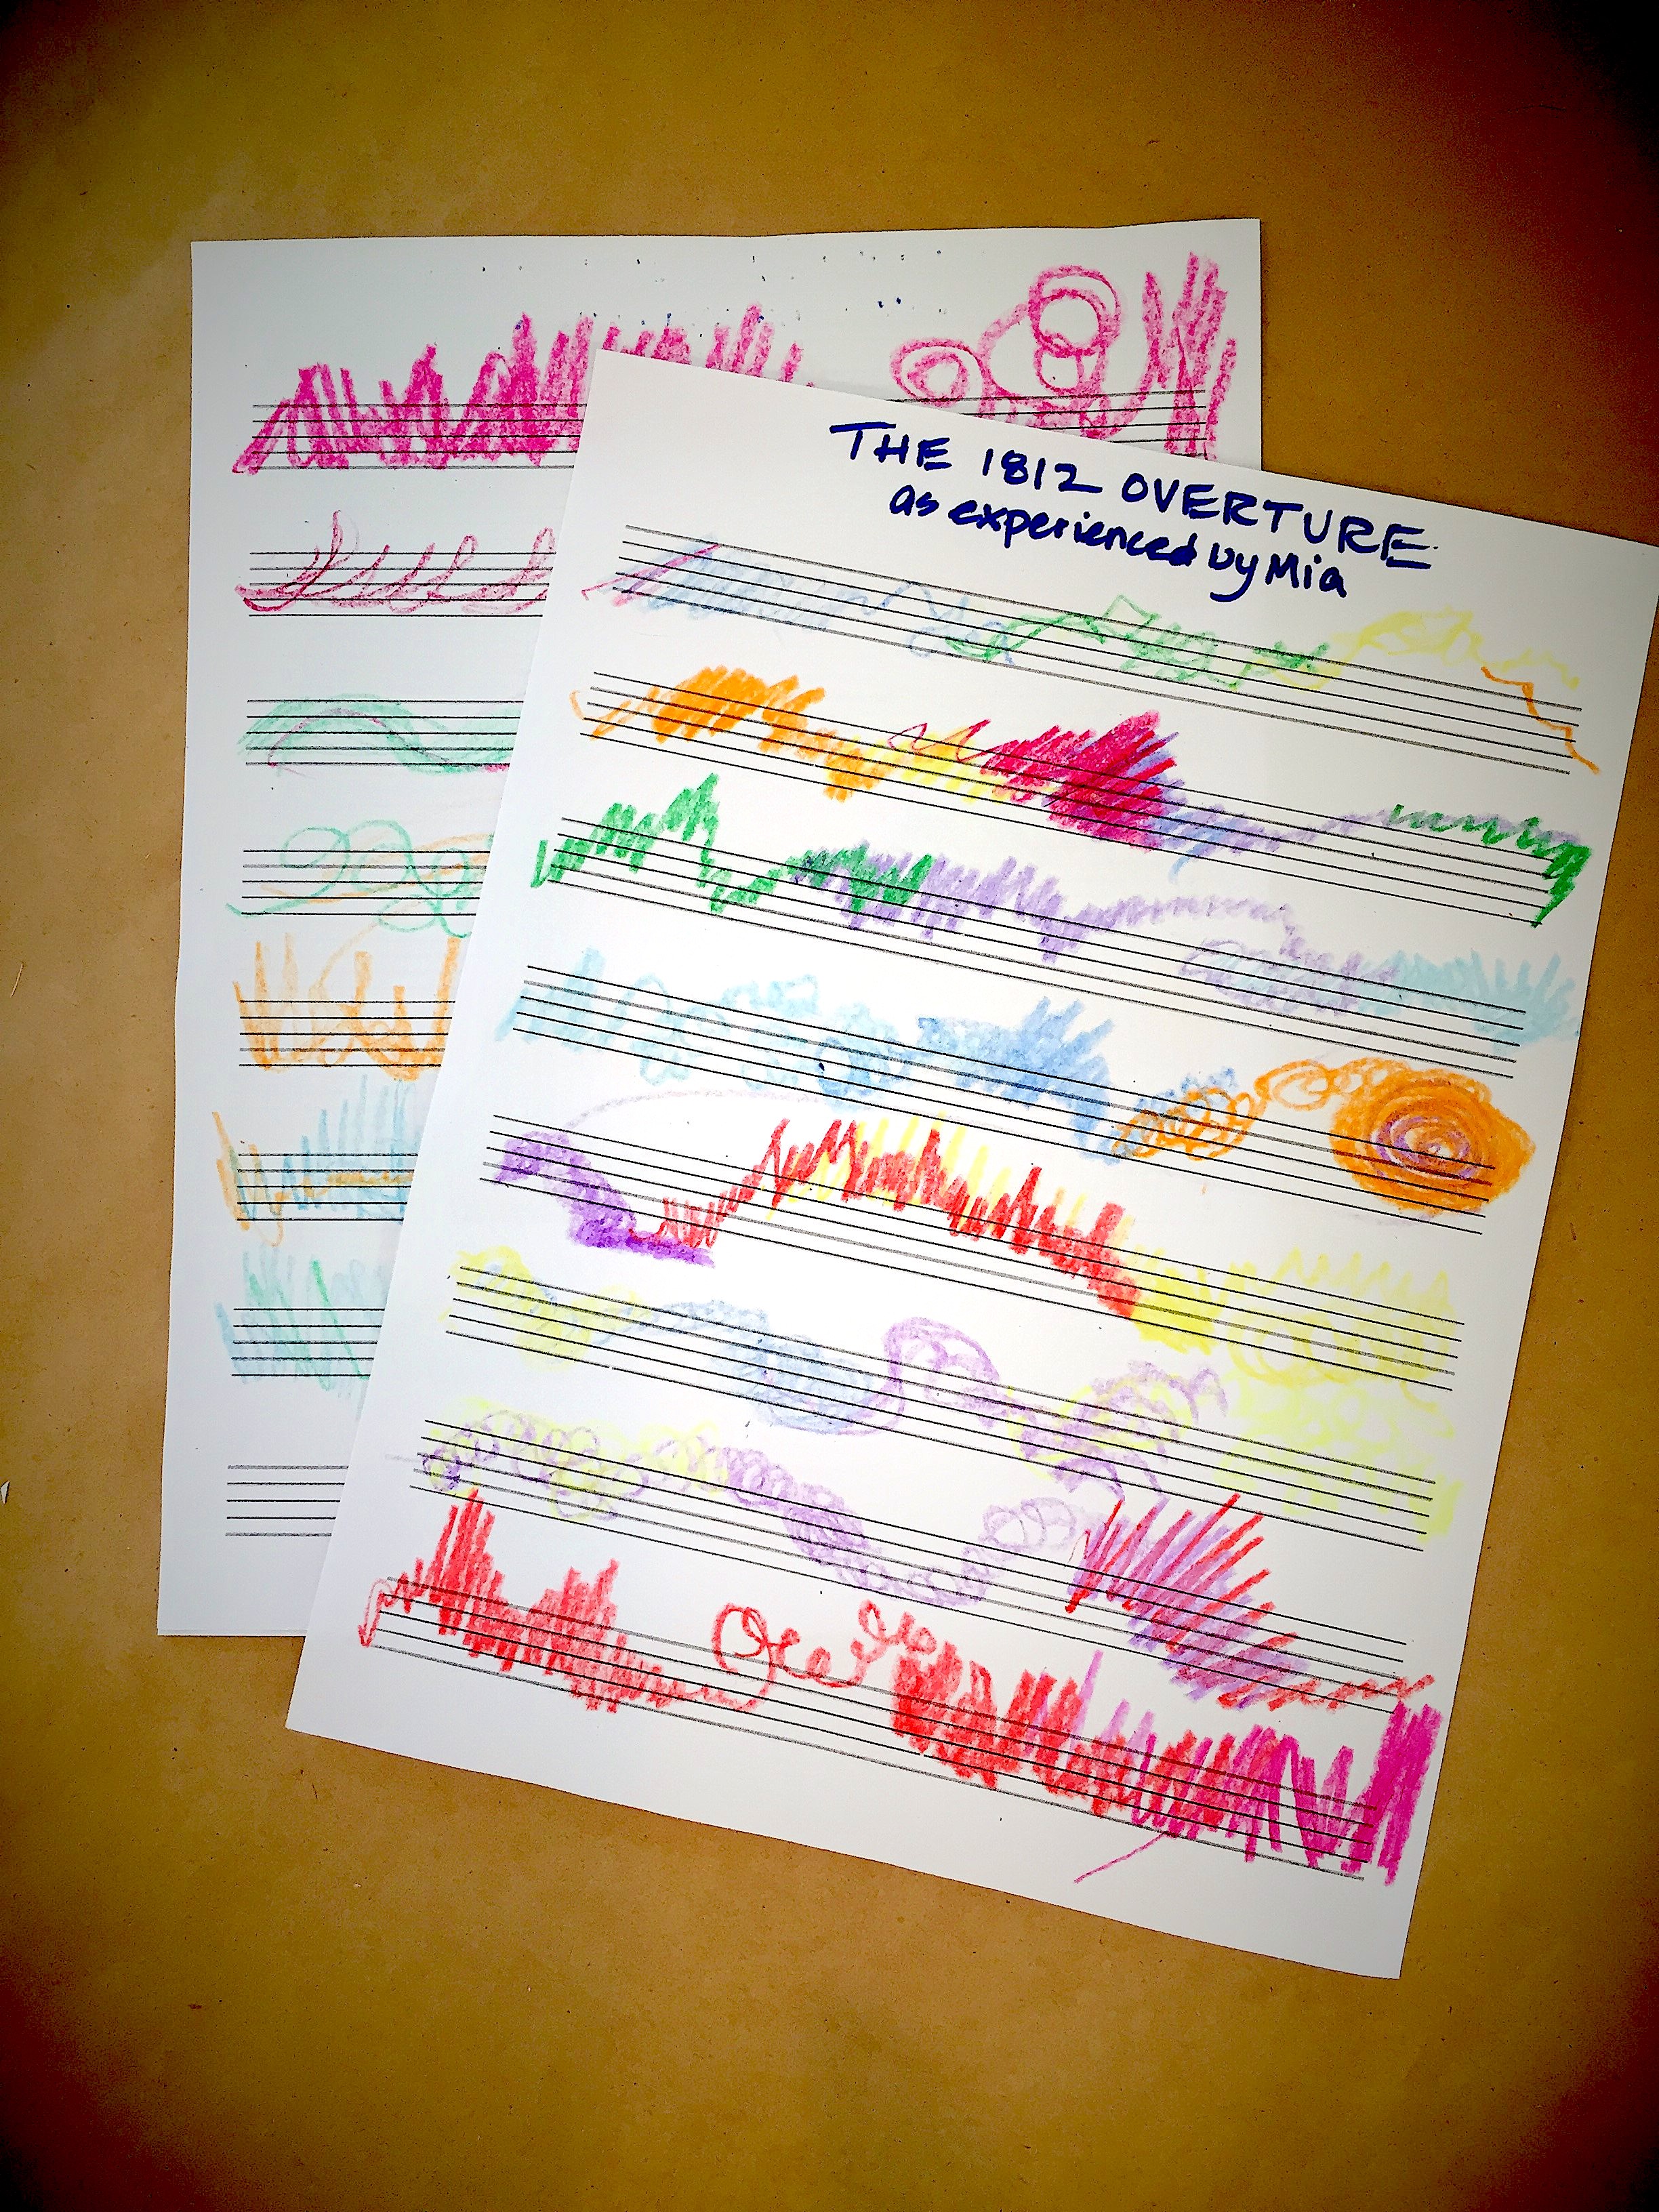 THE 1812 OVERTURE
as experienced by Mia